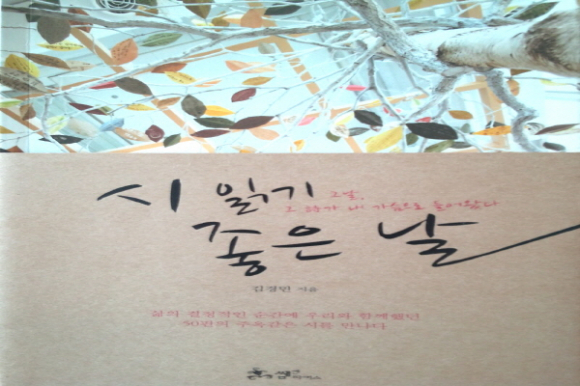 시 읽기
그날,
그 시가 내 가슴으로 들어왔다
좋은 날
김경민 지음
삶의 결정적인 순간에 우리와 함께했던
50편의 주옥같은 시를 만나다